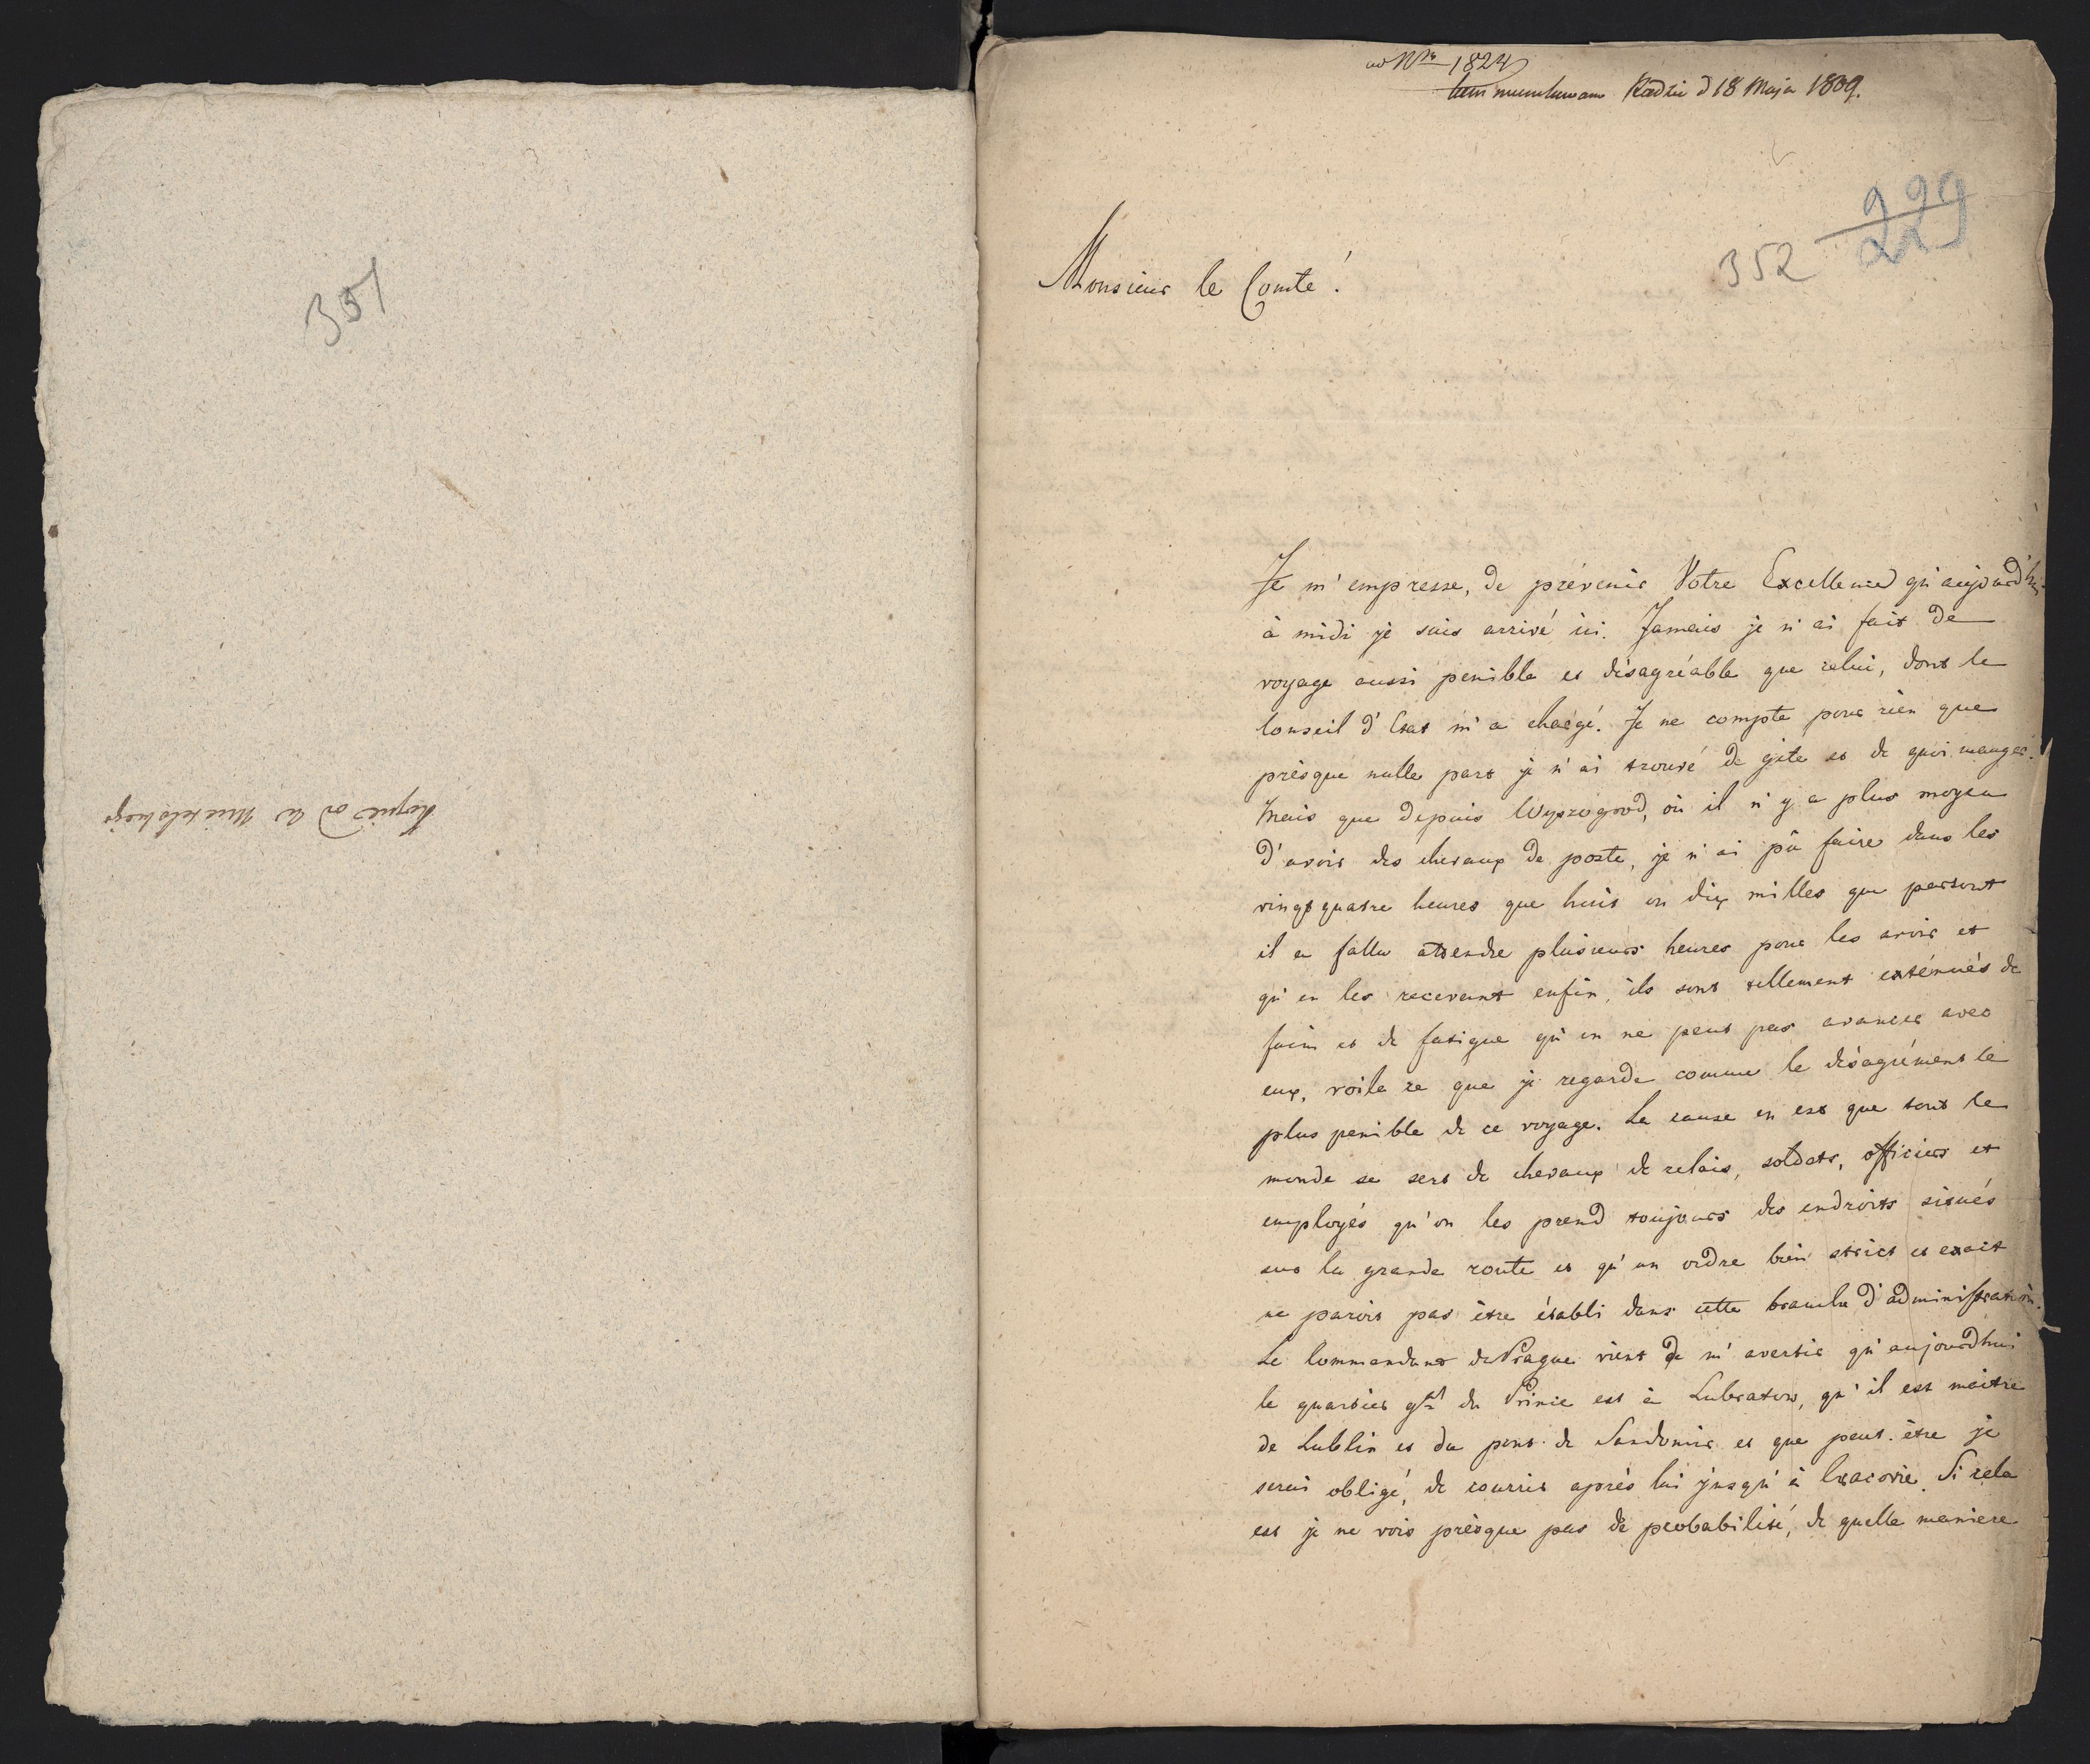 351
Kopie od
ad Nro 1824
Radzie d 18 Maja 1809.
229
352
229
Monsieur le Comte!
Je m'empresse, de prévenir Votre Excellence qu'aujourd'hui
à midi je suis arrivé ici. Jamais je n'ai fait de
voyage aussi penible et désagréable que celui, dont le
Conseil d'Etat m'a chargé. Je ne compte pour rien que
présque nulle part je n'ai trouvé de gite et de quoi manger.
Mais que depuis Wyszogrod, où il n'y a plus moyen
d'avoir des chevaux de poste, je n'ai pû faire dans les
vingt quatre heures que huit ou dix milles que partout
il a fallu attendre plusieurs heures pour les avoir et
qu'en les recevant enfin, ils sont tellement exténués de
faim et de fatigue qu'on ne peut pas avancer avec
eux, voila ce que je regarde comme le désagrément le
plus penible de ce voyage. La cause en est que tout le
monde se sert de chevaux de relais, soldats, officiers et
employés qu'on les prend toujours des endroits situés
sur la grande route et qu'un ordre bien strict et exact
ne paroit pas être établi dans cette branche d'administration.
Le Commandant de Prague vient de m'avertir qu'aujourdhui
le quartier gal du Prince est à Lubratow, qu'il est maitre
de Lublin et du pont de Sandomir et que peut-être je
serai obligé, de courrir après lui jusqu'à Cracovie. Si cela
est je ne vois présque pas de probabilité, de quelle maniere